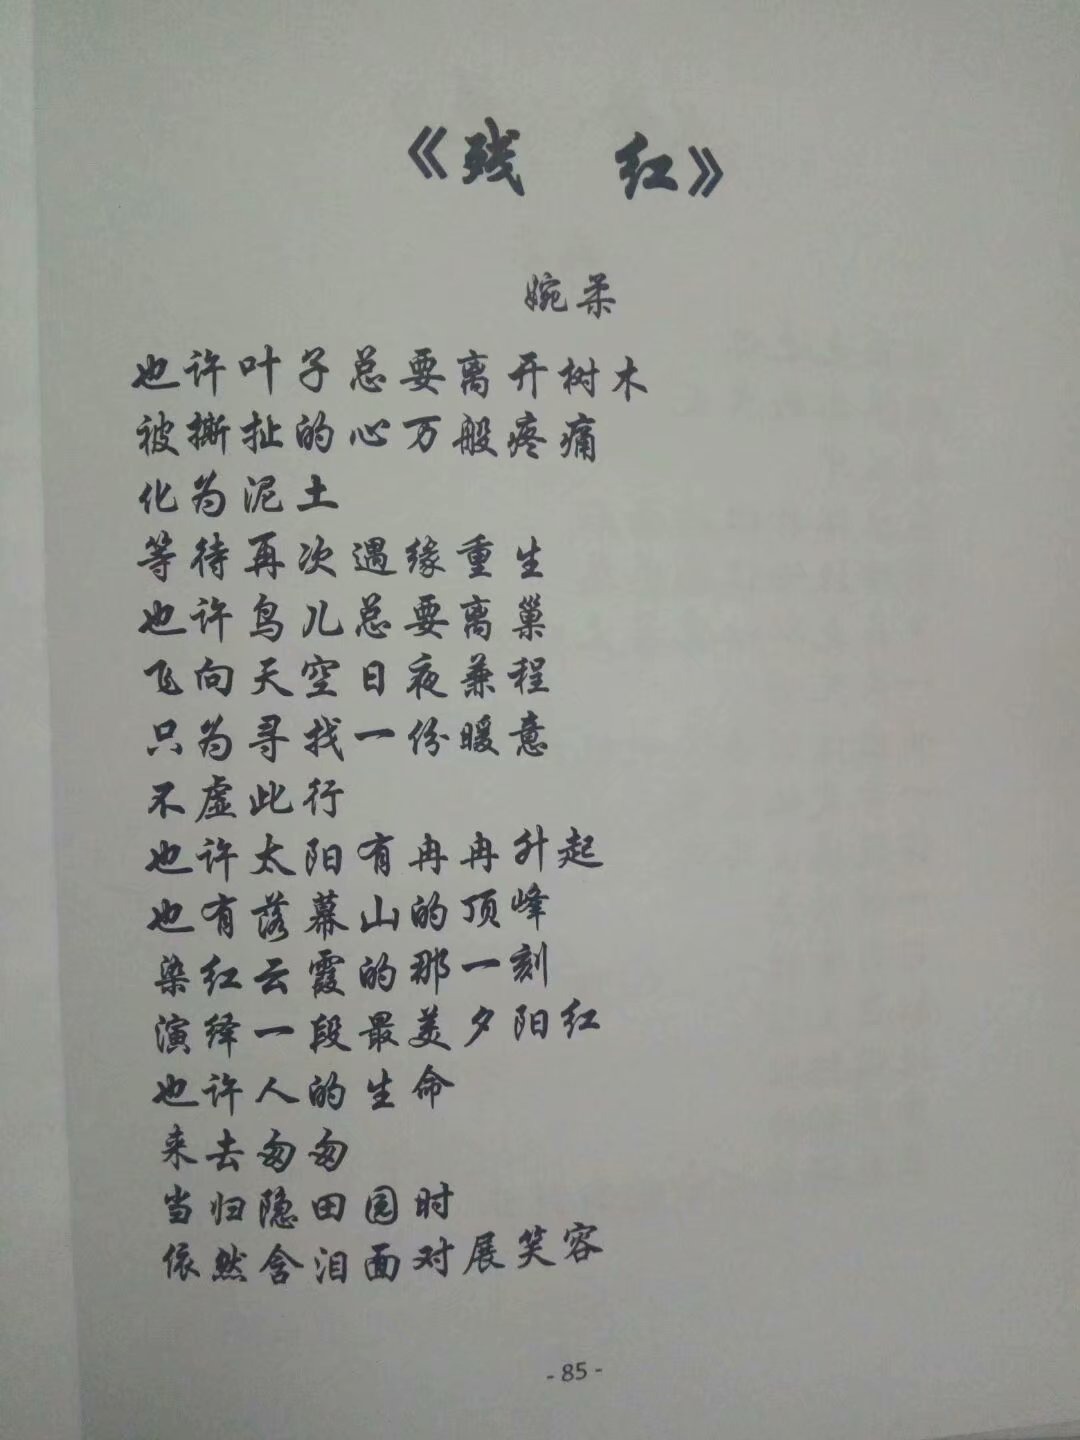 《残 红》
婉柔
也许叶子总要离开树木
被撕扯的心万般疼痛
化为泥土
等待再次遇缘重生
也许鸟儿总要离巢
飞向天空日夜兼程
只为寻找一份暖意
不虚此行
也许太阳有冉冉升起
也有落幕山的顶峰
染红云霞的那一刻
演绎一段最美夕阳红
也许人的生命
来去匆匆
当归隐田园时
依然含泪面对展笑容
- 85 -